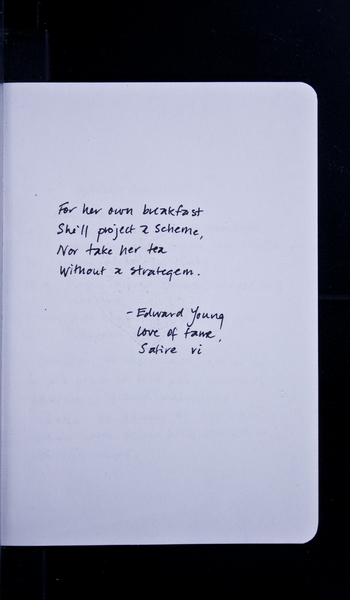 For her own breakfast
She'll project a scheme,
Nor take her tea
Without a strategem.
- Edward Young
Love of fame,
Satire vi